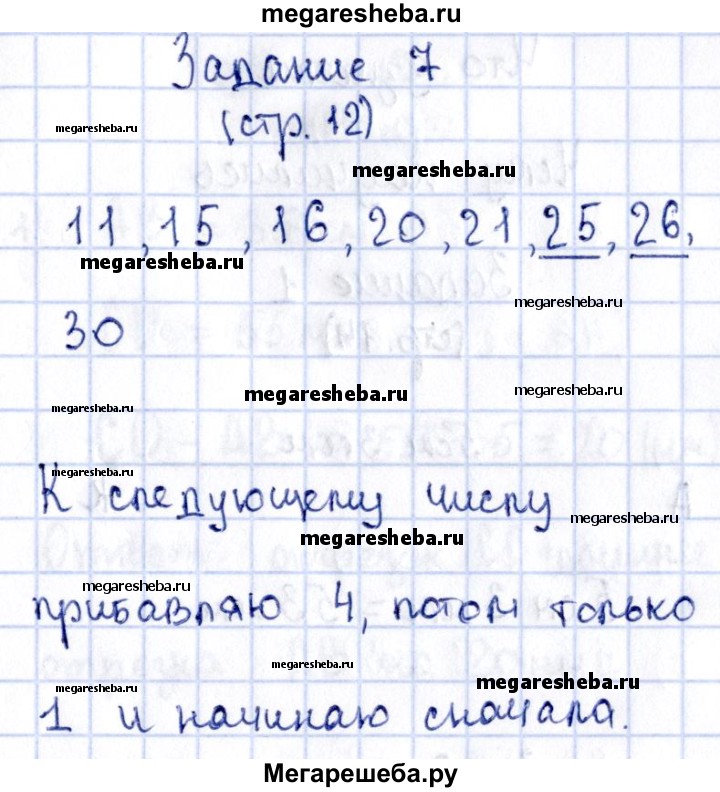 megaresheba.ru
Задание 7
megaresheba.ru
(стр. 12)
megaresheba.ru
11, 15, 16, 20, 21, 25, 26,
megaresheba.ru
megaresheba.ru
30
megaresheba.ru
megaresheba.ru
megaresheba.ru
megaresheba.ru
К следующему числу
megaresheba.ru
megaresheba.ru
megaresheba.ru
прибавляю 4, потом только
megaresheba.ru
megaresheba.ru
megaresheba.ru
1 и начинаю сначала.
Мегарешеба.ру